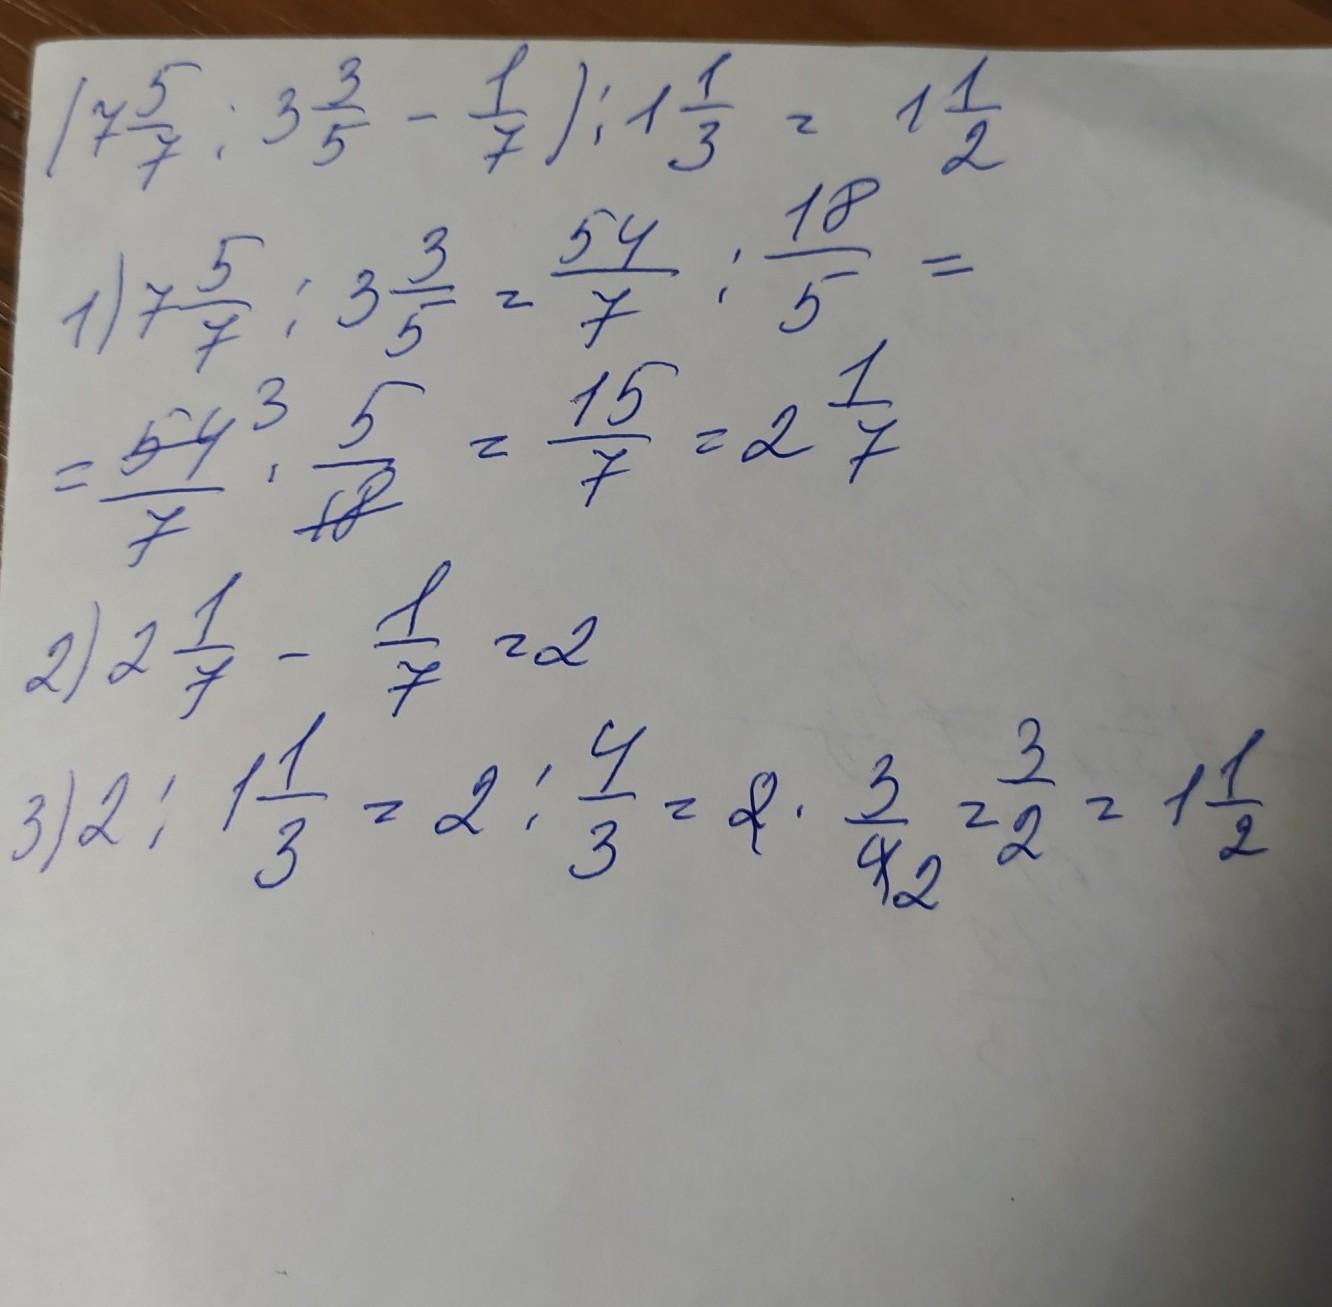 (7 5/7 : 3 3/5 - 1/7) : 1 1/3 = 1 1/2
1) 7 5/7 : 3 3/5 = 54/7 : 18/5 =
= 54/7 3 · 5/18 = 15/7 = 2 1/7
2) 2 1/7 - 1/7 = 2
3) 2 : 1 1/3 = 2 : 4/3 = 2 · 3/4 2 = 3/2 = 1 1/2